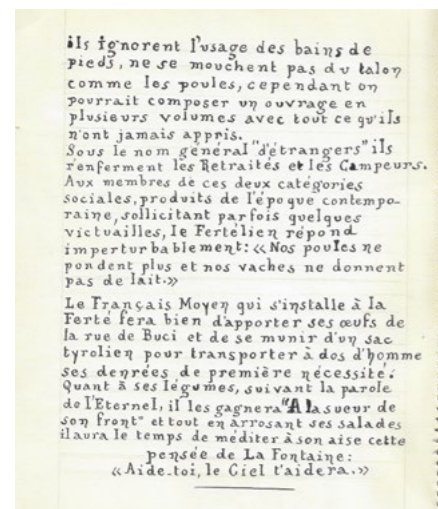 ils ignorent l'usage des bains de
pieds, ne se mouchent pas du talon
comme les poules, cependant on
pourrait composer un ouvrage en
plusieurs volumes avec tout ce qu'ils
n'ont jamais appris.
Sous le nom général "d'étrangers" ils
renferment les Retraités et les Campeurs.
Aux membres de ces deux catégories
sociales, produits de l'époque contempo-
raine, sollicitant parfois quelques
victuailles, le Fertélien répond
imperturbablement: «Nos poules ne
pondent plus et nos vaches ne donnent
pas de lait.»
Le Français Moyen qui s'installe à la
Ferté fera bien d'apporter ses œufs de
la rue de Buci et de se munir d'un sac
tyrolien pour transporter à dos d'homme
ses denrées de première nécessité.
Quant à ses légumes, suivant la parole
de l'Eternel, il les gagnera "A la sueur de
son front" et tout en arrosant ses salades
il aura le temps de méditer à son aise cette
pensée de La Fontaine:
«Aide-toi, le Ciel t'aidera.»